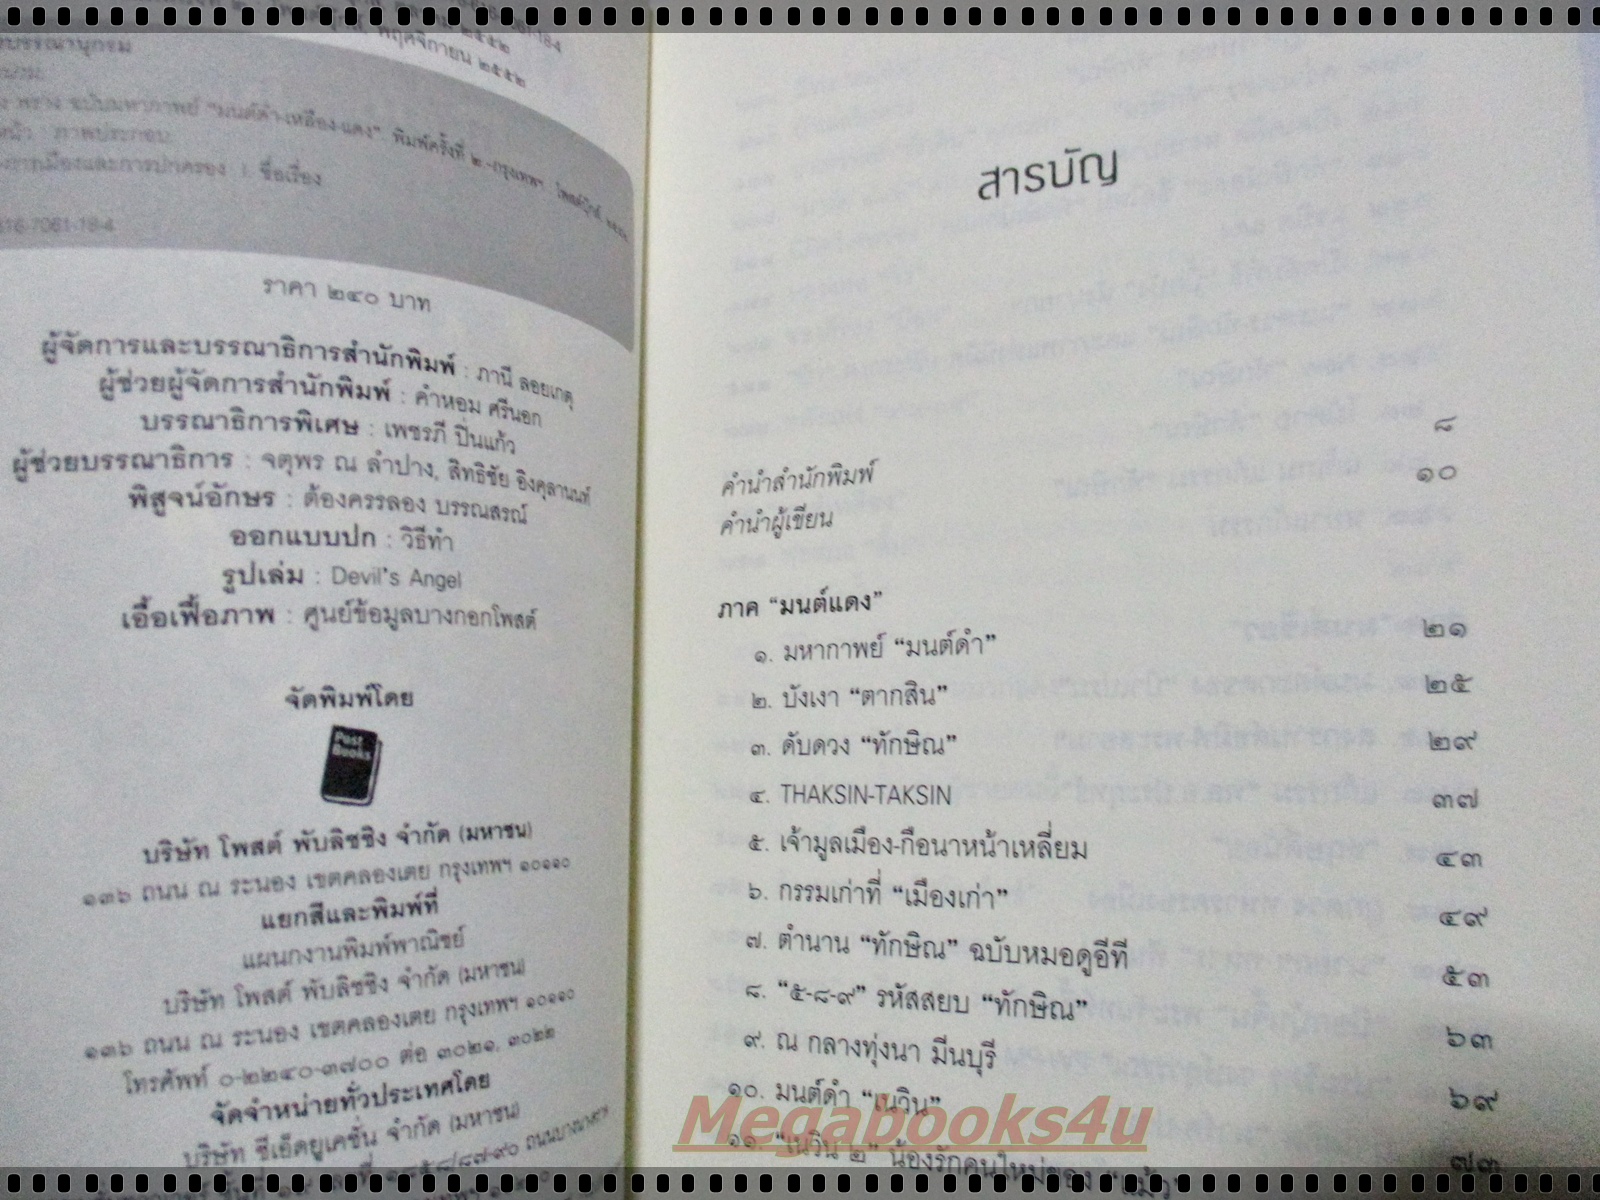 พฤศจิกายน ๒๕๕๒
บรรณานุกรม
พราง ฉบับมหากาพย์ "มนต์ดำ-เหลือง-แดง". พิมพ์ครั้งที่ ๒.-กรุงเทพฯ : โพสต์บุ๊กส์, ๒๕๕๒
หน้า : ภาพประกอบ
การเมืองและการปกครอง I. ชื่อเรื่อง
616-7061-18-4
ราคา ๒๔๐ บาท
ผู้จัดการและบรรณาธิการสำนักพิมพ์ : ภานี ลอยเกตุ
ผู้ช่วยผู้จัดการสำนักพิมพ์ : คำหอม ศรีนอก
บรรณาธิการพิเศษ : เพชรภี ปิ่นแก้ว
ผู้ช่วยบรรณาธิการ : จตุพร ณ ลำปาง, สิทธิชัย อิงคุลานนท์
พิสูจน์อักษร : ต้องครรลอง บรรณสรณ์
ออกแบบปก : วิธีทำ
รูปเล่ม : Devil's Angel
เอื้อเฟื้อภาพ : ศูนย์ข้อมูลบางกอกโพสต์
จัดพิมพ์โดย
Post
Books
บริษัท โพสต์ พับลิชชิง จำกัด (มหาชน)
๑๓๖ ถนน ณ ระนอง เขตคลองเตย กรุงเทพฯ ๑๐๑๑๐
แยกสีและพิมพ์ที่
แผนกงานพิมพ์พาณิชย์
บริษัท โพสต์ พับลิชชิง จำกัด (มหาชน)
๑๓๖ ถนน ณ ระนอง เขตคลองเตย กรุงเทพฯ ๑๐๑๑๐
โทรศัพท์ ๐-๒๒๔๐-๓๗๐๐ ต่อ ๓๐๒๑, ๓๐๒๒
จัดจำหน่ายทั่วประเทศโดย
บริษัท ซีเอ็ดยูเคชั่น จำกัด (มหาชน)
สารบัญ
คำนำสำนักพิมพ์ ๘
คำนำผู้เขียน ๑๐
ภาค "มนต์แดง"
๑. มหากาพย์ "มนต์ดำ" ๒๑
๒. บังเงา "ตากสิน" ๒๕
๓. ดับดวง "ทักษิณ" ๒๙
๔. THAKSIN-TAKSIN ๓๗
๕. เจ้ามูลเมือง-กือนาหน้าเหลี่ยม ๔๓
๖. กรรมเก่าที่ "เมืองเก่า" ๔๙
๗. ตำนาน "ทักษิณ" ฉบับหมอดูอีที ๕๓
๘. "๕-๘-๙" รหัสสยบ "ทักษิณ" ๖๓
๙. ณ กลางทุ่งนา มีนบุรี ๖๙
๑๐. มนต์ดำ "เนวิน" ๗๓
๑๑. "เนวิน ๒" น้องรักคนใหม่ของ "แม้ว"
Megabooks4u